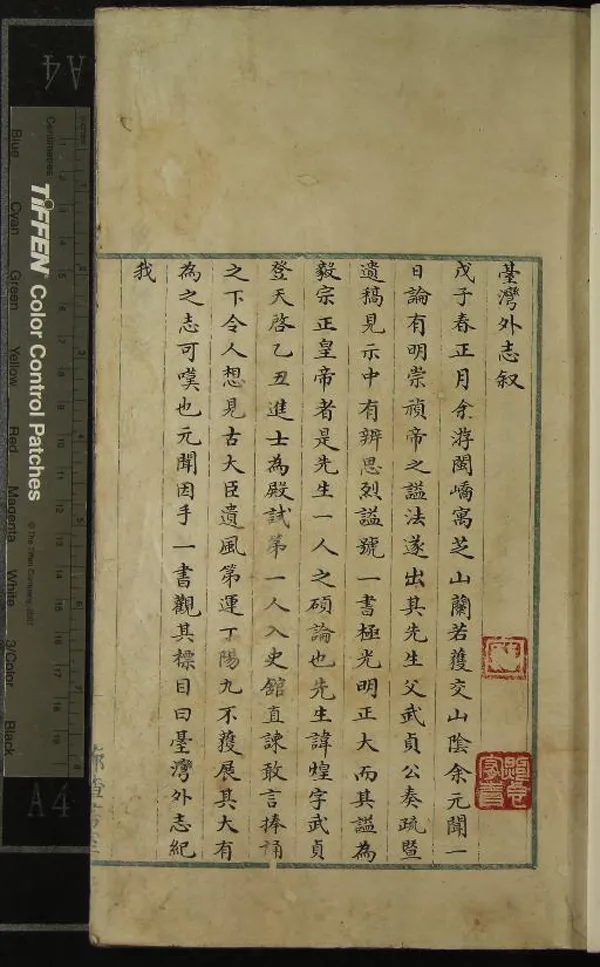 臺灣外志叙
戊子春正月余游閩嶠寓芝山蘭若獲交山陰余元聞一
日論有明崇禎帝之謚法遂出其先生父武貞公奏疏暨
遺稿見示中有辨思烈謚號一書極光明正大而其謚為
毅宗正皇帝者是先生一人之碩論也先生諱煌字武貞
登天啓乙丑進士為殿試第一人入史舘直諫敢言捧誦
之下令人想見古大臣遺風第運丁陽九不獲展其大有
為之志可嘆也元聞因手一書觀其標目曰臺灣外志紀
我
A4
Centimetres
TIFFEN Color Control Patches
© The Tiffen Company, 2007
Blue
Cyan
Green
Yellow
Red
Magenta
White
3/Color
Black
A4